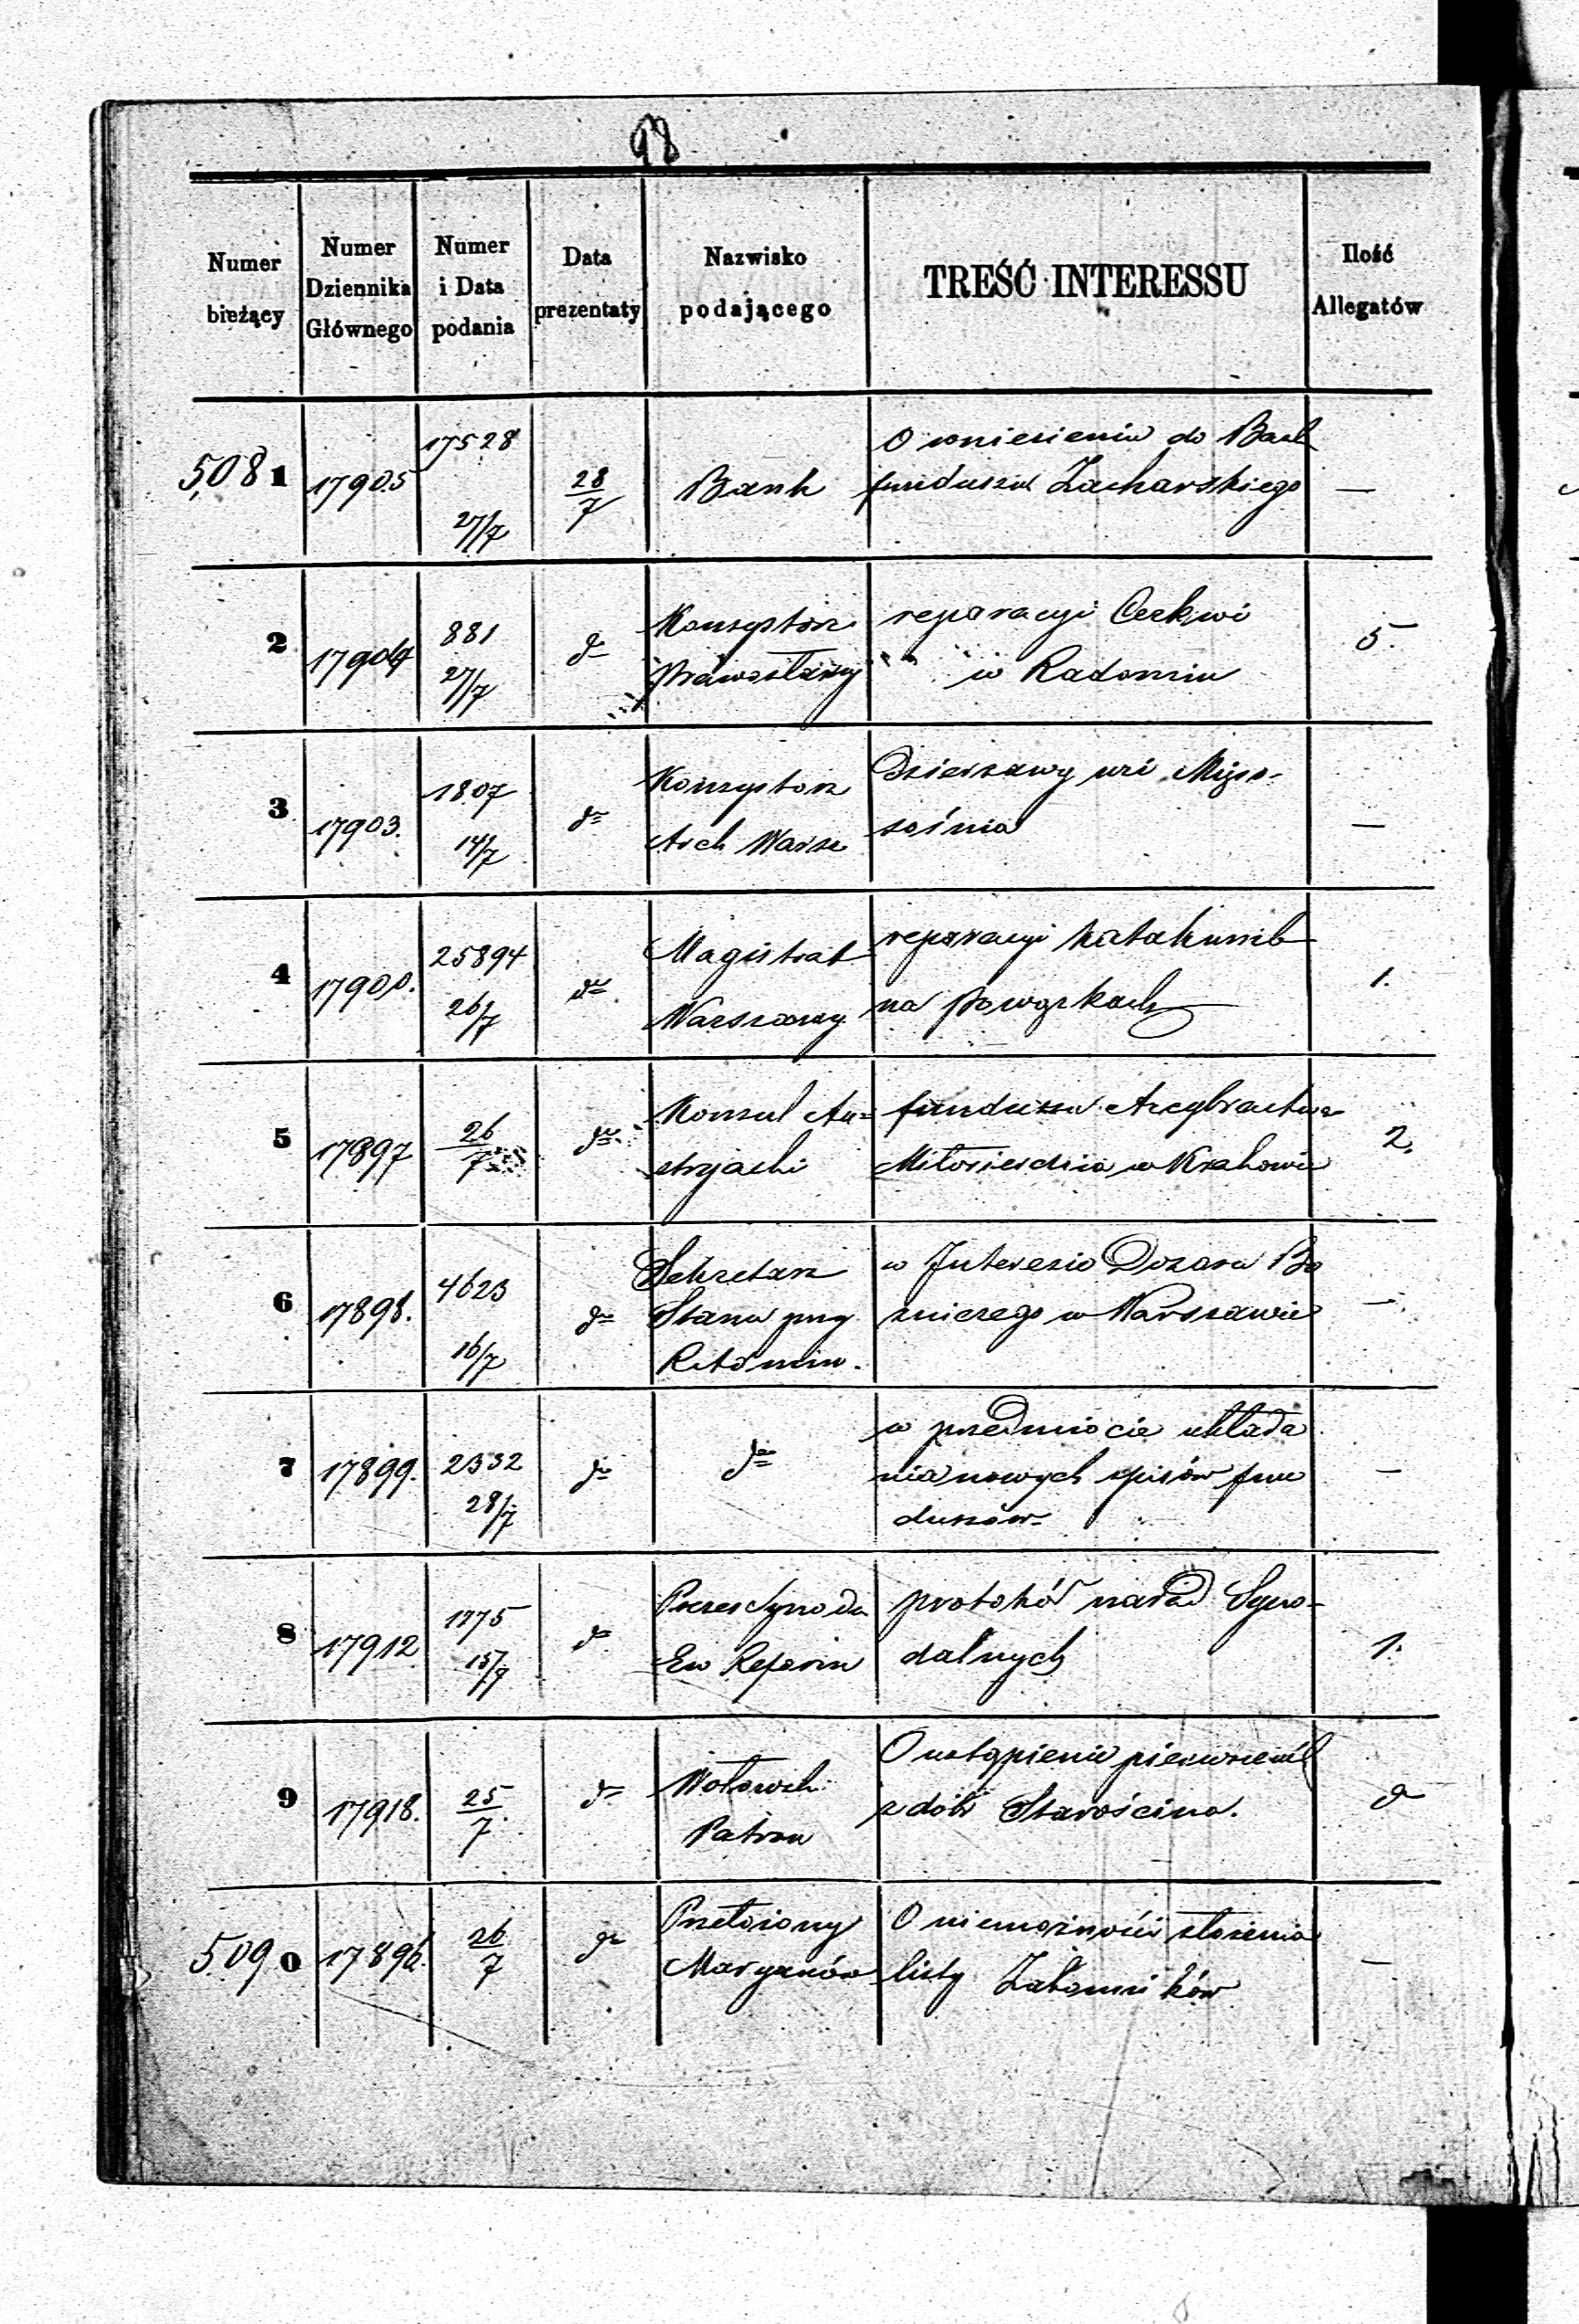 98
Numer bieżący
Numer Dziennika Głównego
Numer i Data podania
Data prezentaty
Nazwisko podającego
TREŚĆ INTERESSU
Ilość Allegatów
5081 17905 17528 27/7 28/7 Bank
O wniesieniu do Bank
funduszu Zacharskiego —
2 17904 881 27/7 d° Konsystorz
Prawosławny
reparacyi Cerkwi
w Radomiu 5.
3 17903. 1807 14/7 d° Konsystorz
Arch Warsz
Dzierżawy wsi
—
4 17900. 25894 26/7 d° Magistrat
Warszawy
reparacyi Katakumb
na Powązkach 1.
5 17897 26/7 d° Konsul Au=
stryacki
funduszu Arcybractwa
Miłosierdzia w Krakowie 2.
6 17898. 4623 16/7 d° Sekretarz
Stanu przy
w Interesie Dozoru Bo
zniczego w Warszawie —
7 17899. 2332 28/7 d° d°
w przedmiocie układa
nia nowych spisów fun
duszów —
8 17912 1775 d° Prezes Synodu
Ew Reform
protokół narad Syno-
dalnych 1.
9 17918. 25/7 d° Wołowski
Patron
O ustąpienie pierwszeń
z dóbr Starościna. d°
5090 17896. 26/7 d° Przełożony
Maryanów
O niemożności złożenia
listy Zakonników —